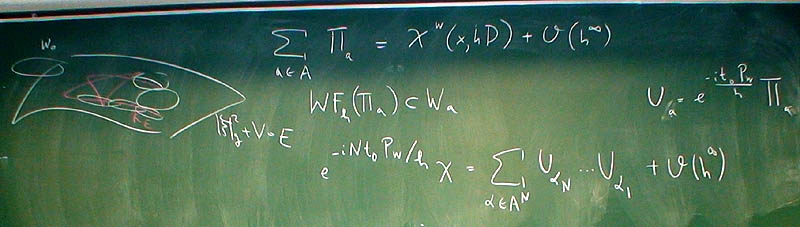 W₀
∑_{a∈A} Π_a = χ^w(x,hD) + O(h^∞)
WF_h(Π_a) ⊂ W_a
U_a = e^{-it₀P_W/h} Π_a
|ξ|²_g + V = E
e^{-iNt₀P_W/h} χ = ∑_{α∈A^N} U_{α_N} ... U_{α_1} + O(h^∞)